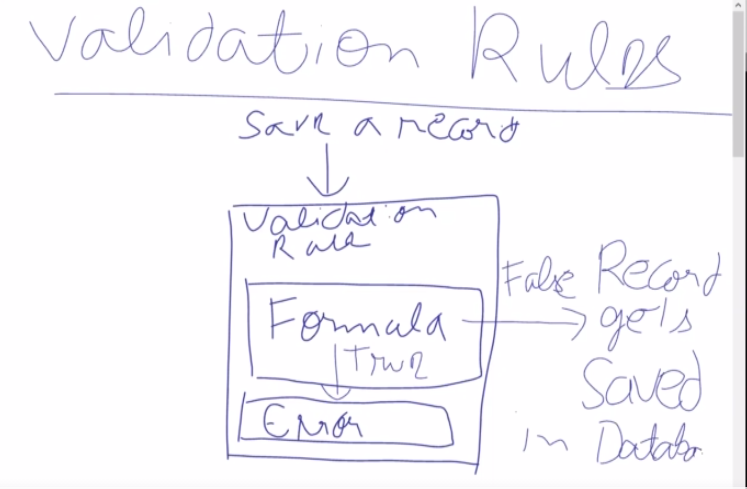 Validation Rules
Save a record
Validation
Rule
Formula
True
Error
False Record
gets
Saved
in Databa